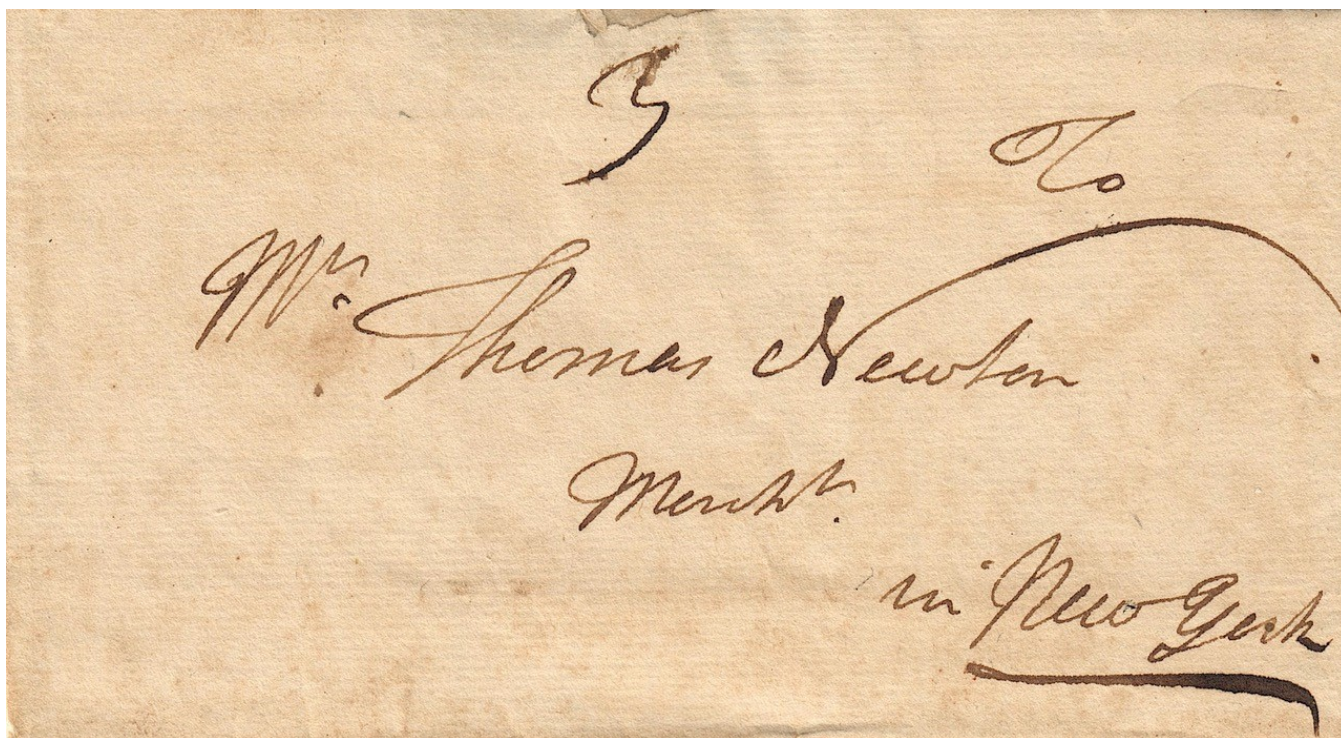 3
To
Mr. Thomas Newton
Mercht.
in New York